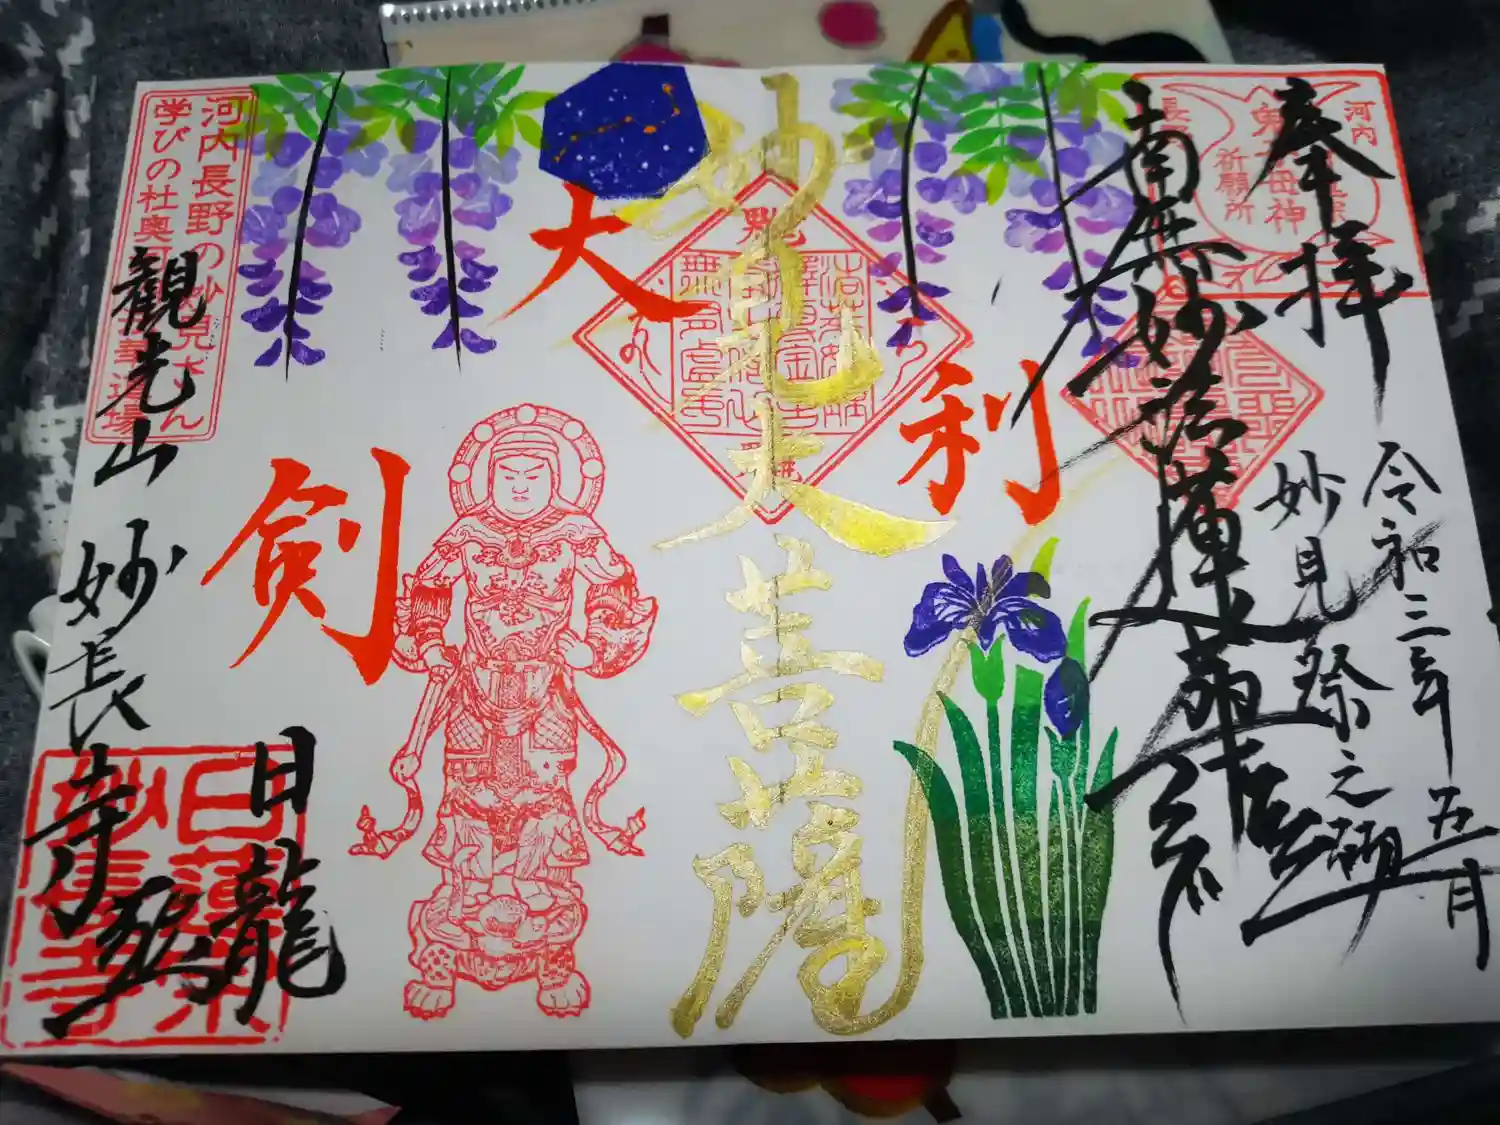 奉拝
令和三年
五月
妙見祭之砌
南無妙法蓮華経
河内
鬼子母神
祈願所
妙見大菩薩
大
利
剣
河内長野の妙見さん
学びの杜奥
道場
観光山
妙長寺
日龍